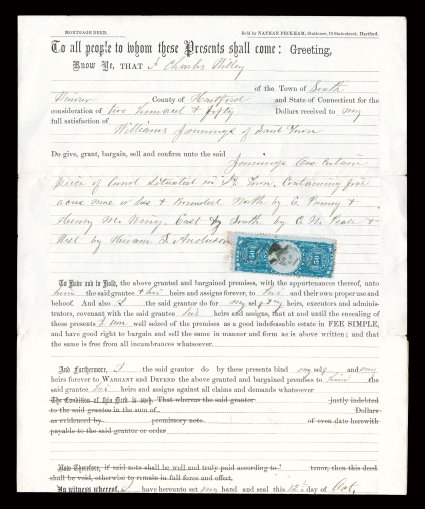 MORTGAGE DEED. Sold by NATHAN PECKHAM, Stationer, 18 State street, Hartford.
To all people to whom these Presents shall come: Greeting,
Know Ye, THAT I Charles
of the Town of South
Windsor County of Hartford and State of Connecticut for the
consideration of two hundred & fifty Dollars received to my
full satisfaction of
Williams Jennings of said Town
Do give, grant, bargain, sell and confirm unto the said
Jennings One Certain
Piece of land situated in Town, Containing five
acres more or less & Bounded North by E.
Henry M. East by South by &
West by Hiram Anderson
To Have and to Hold, the above granted and bargained premises, with the appurtenances thereof, unto
him the said grantee & his heirs and assigns forever, to his and their own proper use and
behoof. And also I the said grantor do for myself & my heirs, executors and adminis-
trators, covenant with the said grantee his heirs and assigns, that at and until the ensealing of
these presents I am well seized of the premises as a good indefeasable estate in FEE SIMPLE,
and have good right to bargain and sell the same in manner and form as is above written; and that
the same is free from all incumbrances whatsoever.
And Furthermore, I the said grantor do by these presents bind myself and my
heirs forever to WARRANT AND DEFEND the above granted and bargained premises to him the
said grantee his heirs and assigns against all claims and demands whatsoever
The Condition of this Deed is such, That whereas the said grantor justly indebted
to the said grantee in the sum of Dollars
as evidenced by promissory note of even date herewith
payable to the said grantor or order
Now Therefore, if said note shall be well and truly paid according to tenor, then this deed
shall be void, otherwise to remain in full force and effect.
In witness whereof, I have hereunto set my hand and seal this 12th day of Oct.